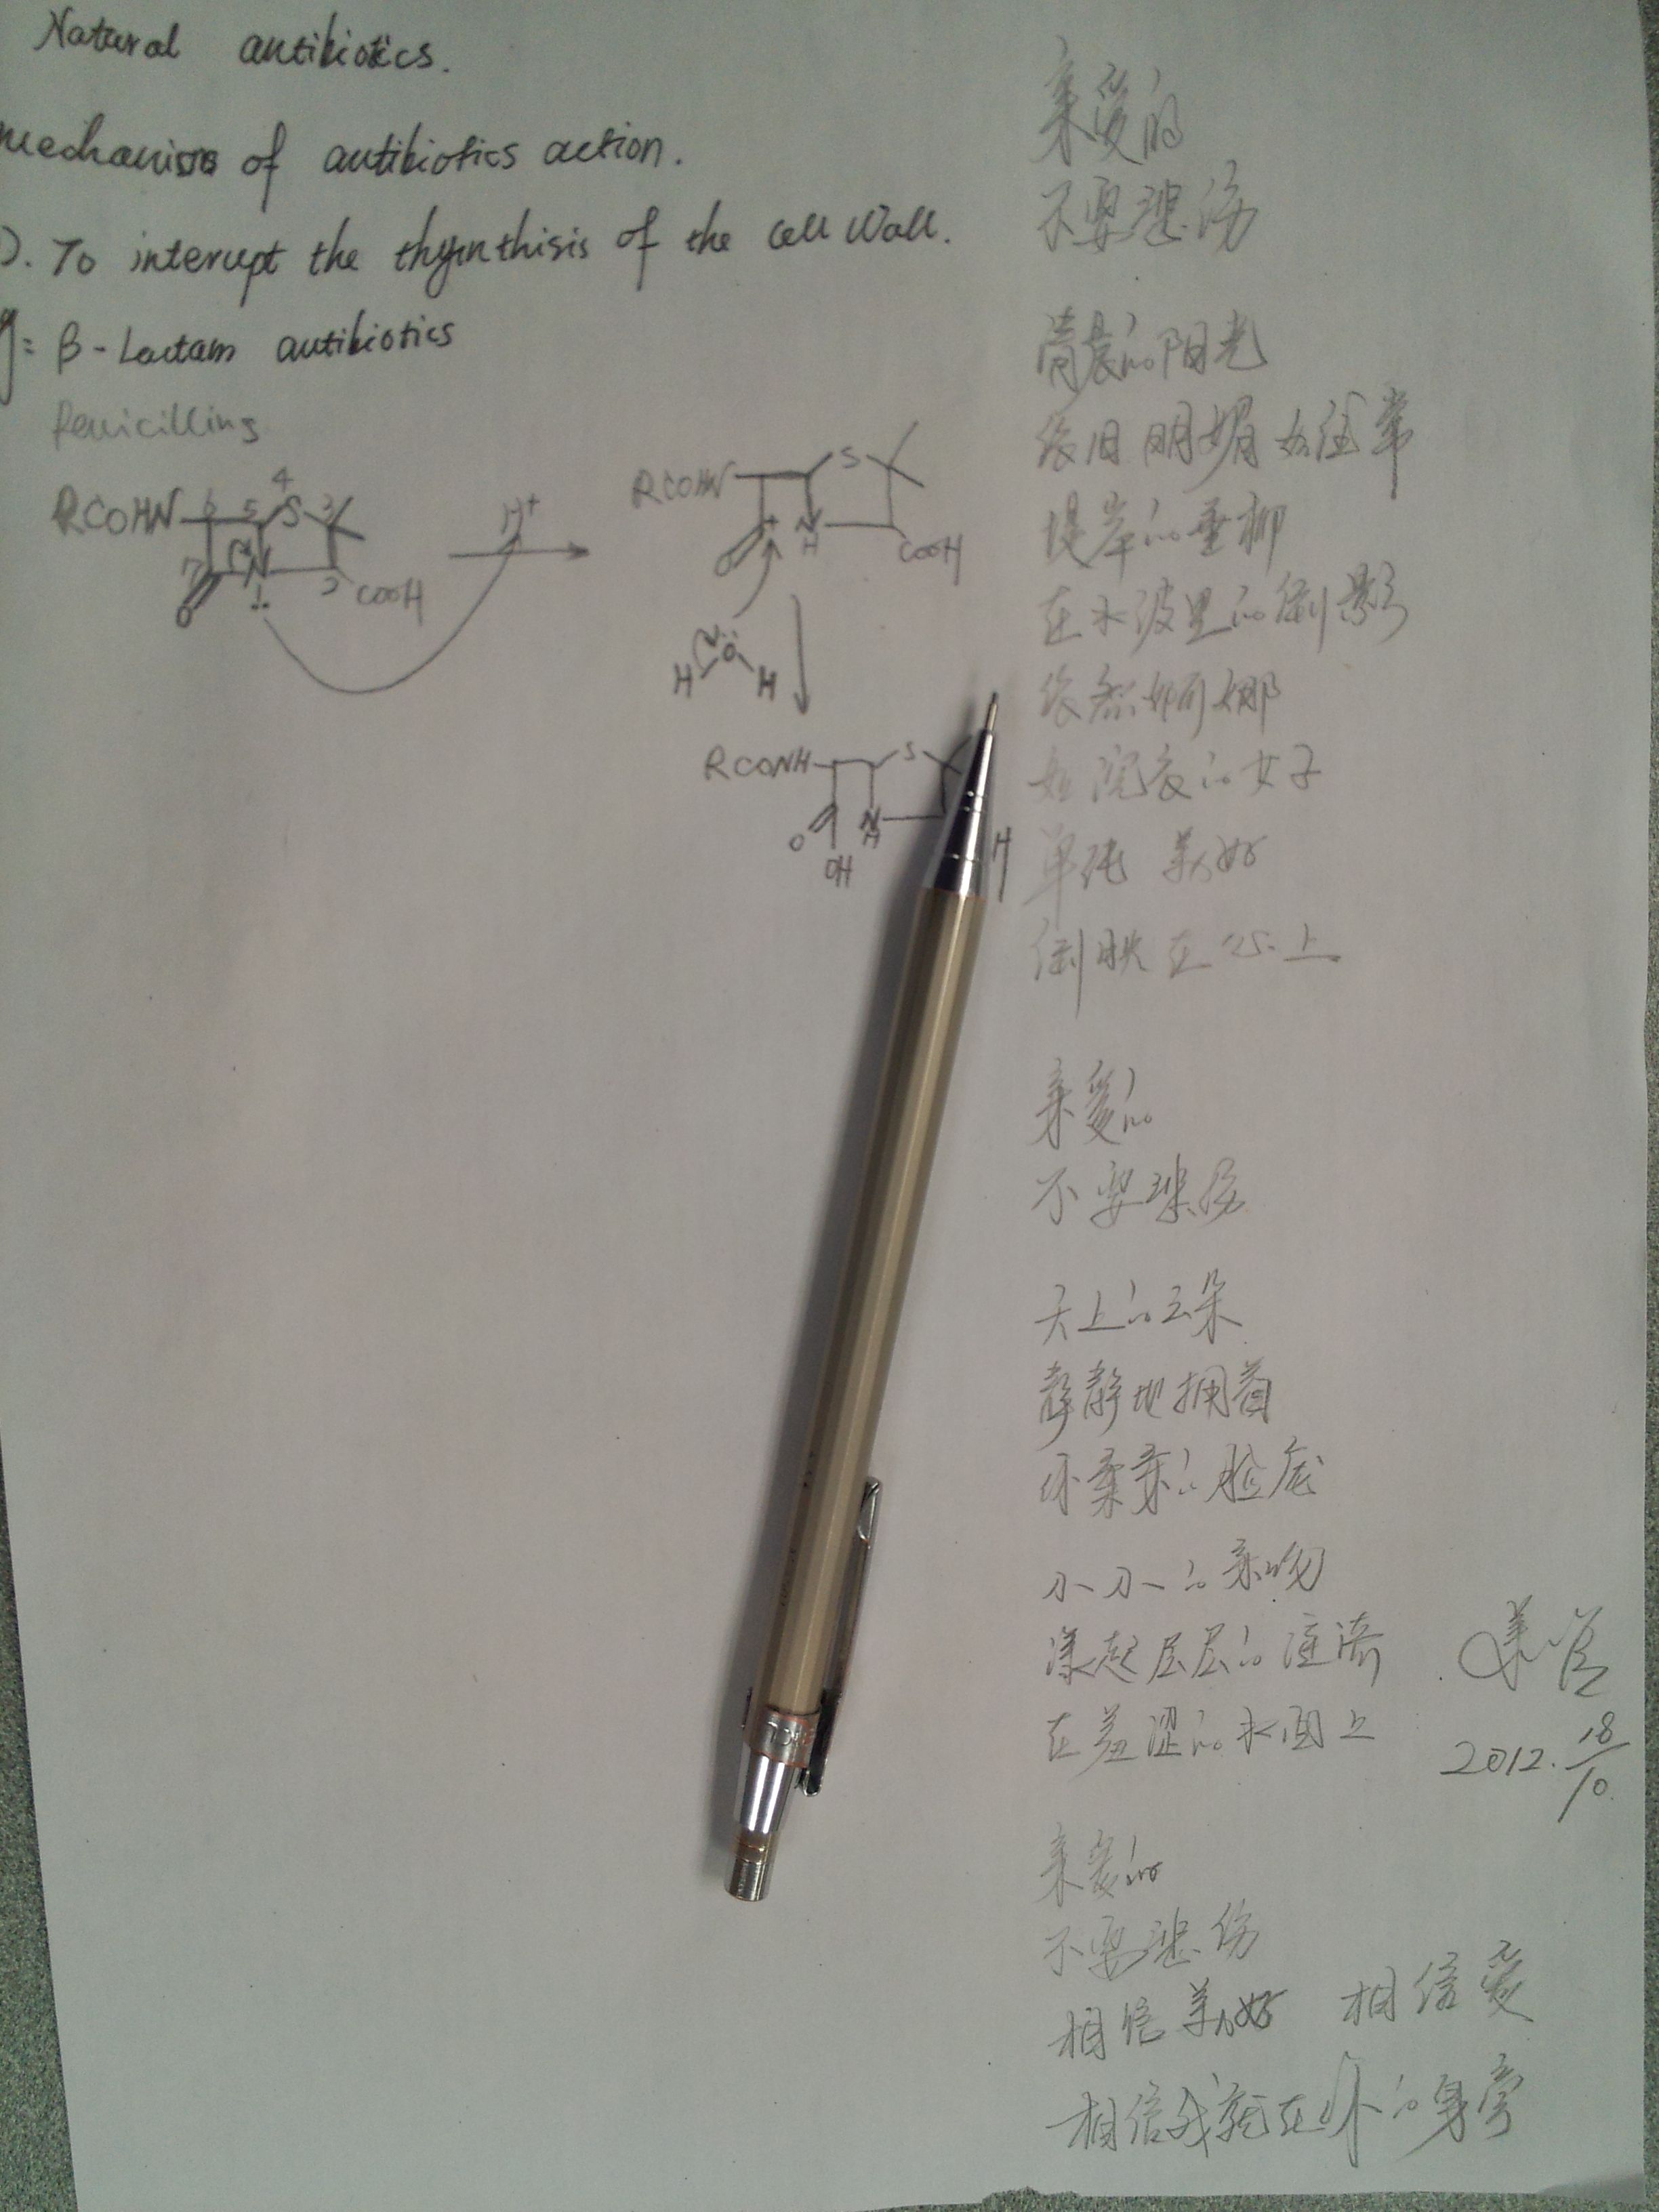 Natural antibiotics.
mechanism of antibiotics action.
). To interupt the thynthisis of the cell Wall.
g: β-Lactam antibiotics
Penicilling
RCOHN 6 5 4 S 3
7 N
O 1 2 COOH
H⁺
RCOHN S
+ N
O H COOH
H O H
RCONH S
O N
OH H H
亲爱的
不要悲伤
清晨的阳光
依旧明媚如往常
堤岸的垂柳
在水波里的倒影
依然婀娜
如浣衣的女子
单纯 美好
倒映在心上
亲爱的
不要悲伤
天上的云朵
静静地拥着
你柔柔的脸庞
小小的亲吻
漾起层层的涟漪
在羞涩的水面上
2012. 18/10.
亲爱的
不要悲伤
相信美好 相信爱
相信我就在你的身旁